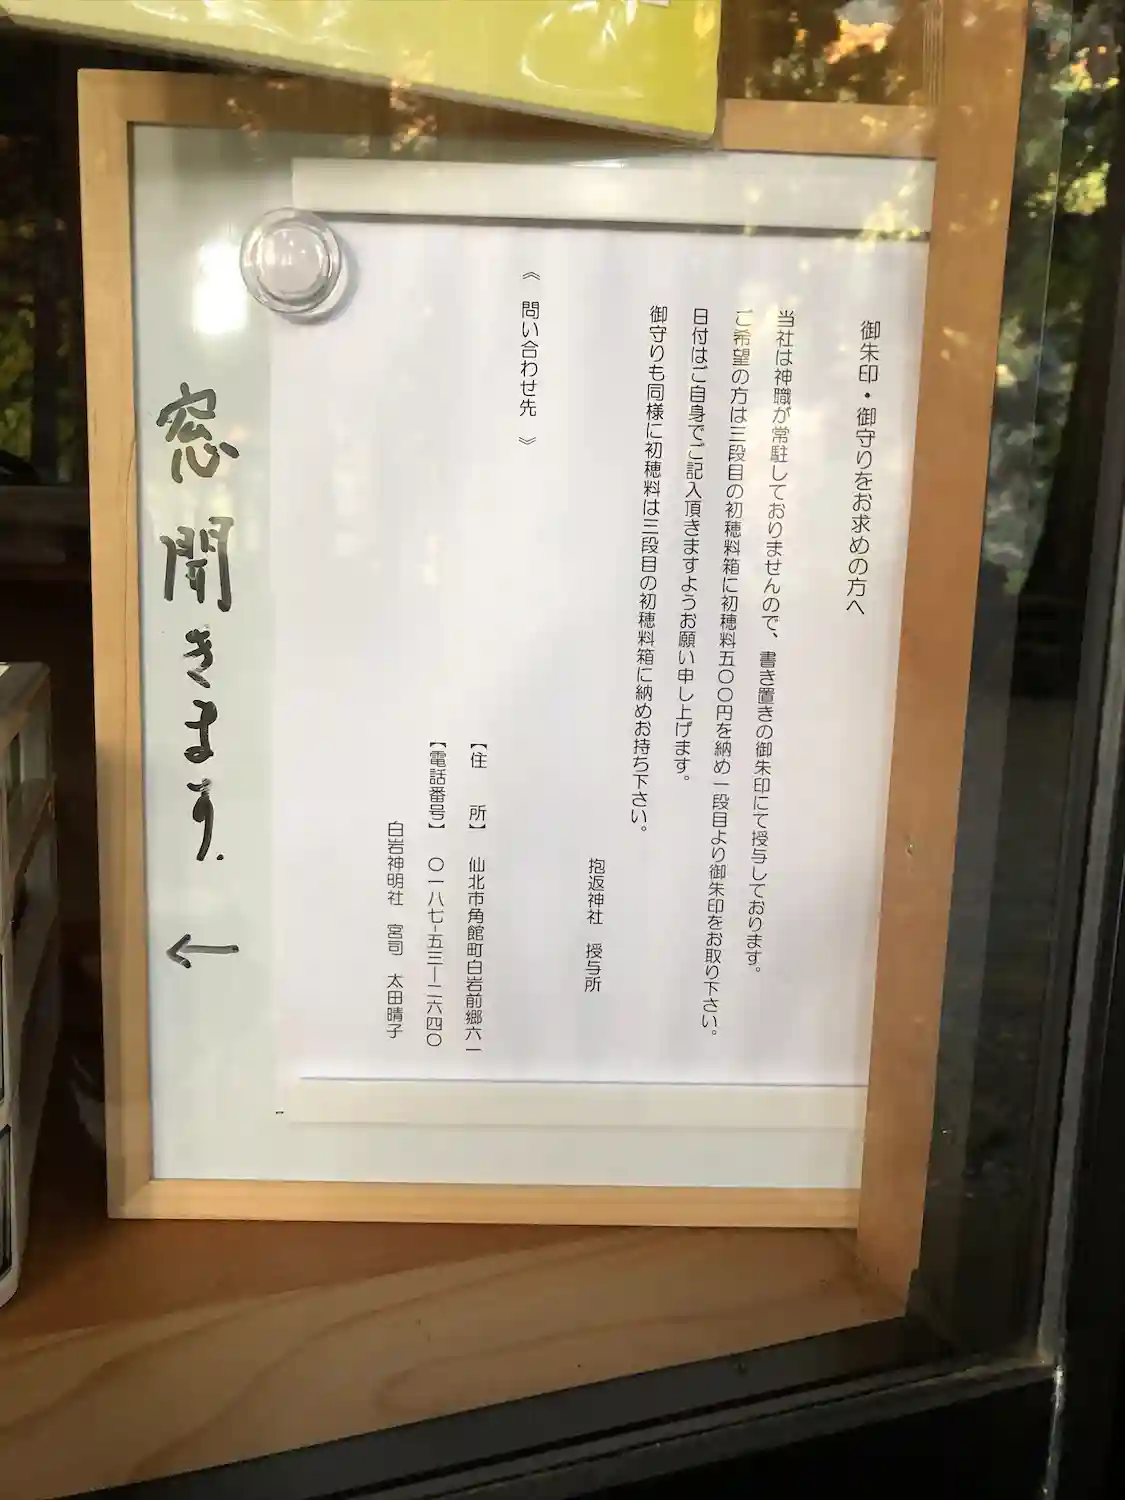 御朱印・御守りをお求めの方へ
当社は神職が常駐しておりませんので、書き置きの御朱印にて授与しております。
ご希望の方は三段目の初穂料箱に初穂料五〇〇円を納め一段目より御朱印をお取り下さい。
日付はご自身でご記入頂きますようお願い申し上げます。
御守りも同様に初穂料は三段目の初穂料箱に納めお持ち下さい。
抱返神社 授与所
《 問い合わせ先 》
【住 所】 仙北市角館町白岩前郷六一
【電話番号】 〇一八七-五三-二六四〇
白岩神明社 宮司 太田晴子
窓開きます.←